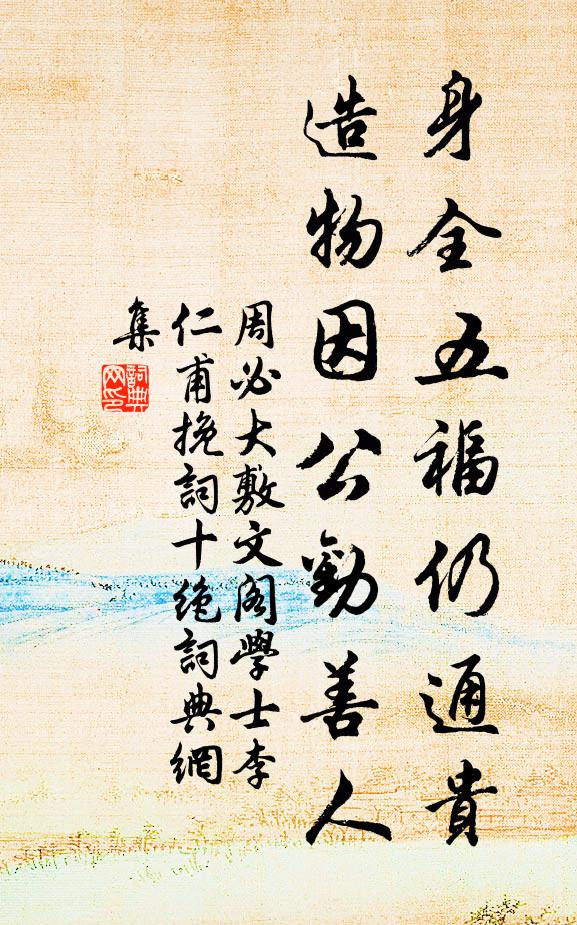 身全五福仍通貴
造物因公勸善人
周必大敷文閣學士李
仁甫挽詞十絕詞典網
集
詞典網印